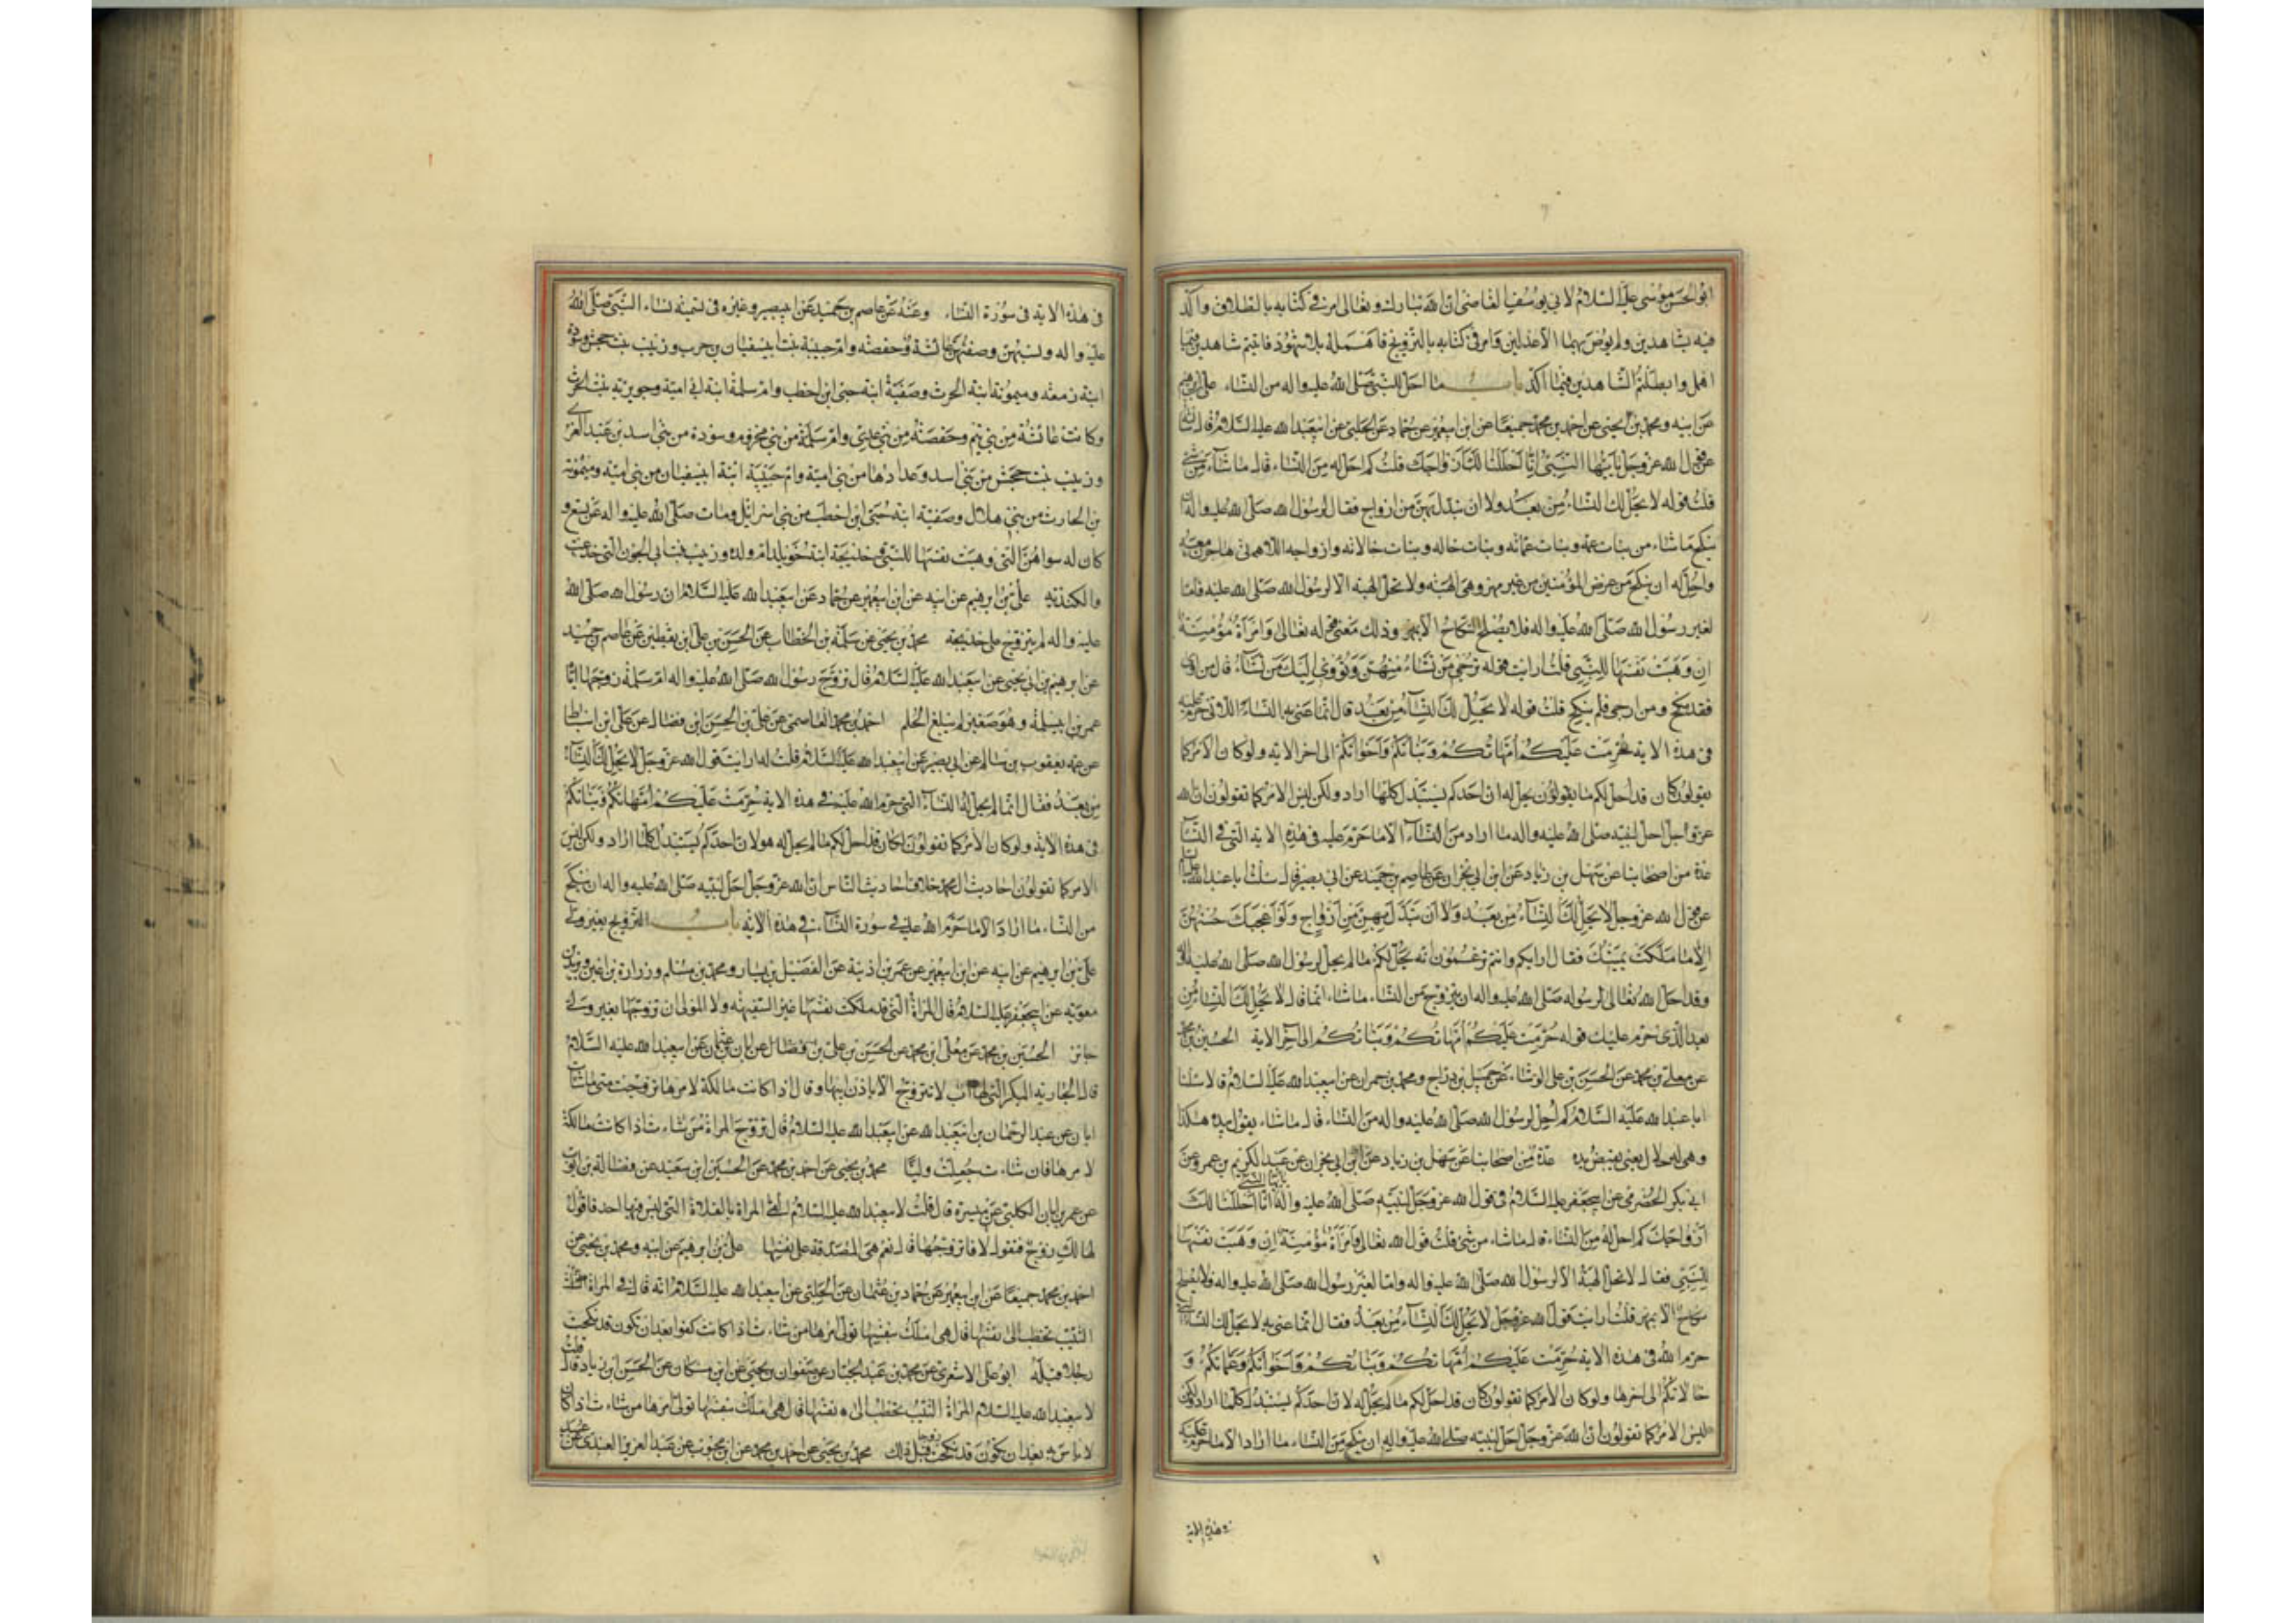 ابو الحسن موسى عليه السلام لابي يوسف القاضي ان الله تبارك وتعالى امر في كتابه بالطلاق واكد
فيه بشاهدين ولم يرض بهما الا عدلين وامر في كتابه بالتزويج فاهمله بلا شهود فاثبتم شاهدين فيما
اهمل وابطلتم الشاهدين فيما اكد باب ما احل للنبي صلى الله عليه واله من النساء علي بن ابرهيم
عن ابيه ومحمد بن يحيى عن احمد بن محمد جميعا عن ابن ابيعمير عن حماد عن الحلبي عن ابيعبد الله عليه السلام قال سالته
عن قول الله عز وجل يا ايها النبي انا احللنا لك ازواجك قلت كم احل له من النساء قال ما شاء من شئ
قلت قوله لا يحل لك النساء من بعد ولا ان تبدل بهن من ازواج فقال لرسول الله صلى الله عليه واله ان
ينكح ما شاء من بنات عمه وبنات عماته وبنات خاله وبنات خالاته وازواجه اللاتي هاجرن معه
واحل له ان ينكح من عرض المؤمنين من غير مهر وهي الهبة ولا تحل الهبة الا لرسول الله صلى الله عليه فاما
لغير رسول الله صلى الله عليه واله فلا يصلح النكاح الا بمهر وذلك معنى قوله تعالى وامرأة مؤمنة
ان وهبت نفسها للنبي قلت ارايت قوله ترجي من تشاء منهن وتؤوي اليك من تشاء قال من اوى
فقد نكح ومن ارجى فلم ينكح قلت قوله لا يحل لك النساء من بعد قال انما عنى به النساء اللاتي حرم عليه
في هذه الاية حرمت عليكم امهاتكم وبناتكم واخواتكم الى اخر الاية ولو كان الامر كما
يقولون كان قد احل لكم ما يقولون يحل له ان احدكم يستبدل كلما اراد ولكن ليس الامر كما تقولون ان الله
عز وجل احل لنبيه صلى الله عليه واله ما اراد من النساء الا ما حرم عليه في هذه الاية التي في النساء
عدة من اصحابنا عن سهل بن زياد عن ابن ابي نجران عن عاصم بن حميد عن ابي بصير قال سئلت ابا عبد الله عليه السلام
عن قول الله عز وجل لا يحل لك النساء من بعد ولا ان تبدل بهن من ازواج ولو اعجبك حسنهن
الا ما ملكت يمينك فقال اراكم وانتم تزعمون انه يحل لكم ما لم يحل لرسول الله صلى الله عليه واله
وقد احل الله تعالى لرسوله صلى الله عليه واله ان يتزوج من النساء ما شاء انما قال لا يحل لك النساء من
بعد الذي حرم عليك قوله حرمت عليكم امهاتكم وبناتكم الى اخر الاية الحسين بن محمد
عن معلى بن محمد عن الحسن بن علي الوشاء عن جميل بن دراج ومحمد بن حمران عن ابيعبد الله عليه السلام قالا سالنا
ابا عبد الله عليه السلام كم احل لرسول الله صلى الله عليه واله من النساء قال ما شاء يقول بيده هكذا
وهي له حلال يعني يقبض يده عدة من اصحابنا عن سهل بن زياد عن ابن ابي نجران عن عبد الكريم بن عمرو عن
ابي بكر الحضرمي عن ابيجعفر عليه السلام في قول الله عز وجل لنبيه صلى الله عليه واله يا ايها النبي انا احللنا لك
ازواجك كم احل له من النساء قال ما شاء من شئ قلت قول الله تعالى وامرأة مؤمنة ان وهبت نفسها
للنبي فقال لا تحل الهبة الا لرسول الله صلى الله عليه واله واما لغير رسول الله صلى الله عليه واله فلا يصلح
نكاح الا بمهر قلت ارايت قول الله عز وجل لا يحل لك النساء من بعد فقال انما عنى به لا يحل لك النساء التي
حرم الله في هذه الاية حرمت عليكم امهاتكم وبناتكم واخواتكم وعماتكم و
خالاتكم الى اخرها ولو كان الامر كما تقولون كان قد احل لكم ما لم يحل له لان احدكم يستبدل كلما اراد ولكن
ليس الامر كما تقولون ان الله عز وجل احل لنبيه صلى الله عليه واله ان ينكح من النساء ما اراد الا ما حرم عليه
في هذه الاية
في هذه الاية في سورة النساء وعنه عن عاصم بن حميد عن ابيبصير وغيره في تسمية نساء النبي صلى الله
عليه واله ونسبهن وصفتهن عائشة وحفصة وام حبيبة بنت ابيسفيان بن حرب وزينب بنت جحش وسودة
ابنة زمعة وميمونة ابنة الحرث وصفية ابنة حيى ابن اخطب وام سلمة ابنة ابي امية وجويرية بنت الحرث
وكانت عائشة من بني تيم وحفصة من بني عدي وام سلمة من بني مخزوم وسودة من بني اسد بن عبد العزى
وزينب بنت جحش من بني اسد وعدادها من بني امية وام حبيبة ابنة ابيسفيان من بني امية وميمونة
بن الحارث من بني هلال وصفية ابنة حيى ابن اخطب من بني اسرائيل ومات صلى الله عليه واله عن تسع و
كان له سواهن التي وهبت نفسها للنبي وخديجة ابنة خويلد ام ولده وزينب بنت ابي الجون التي خدعت
والكندية علي بن ابرهيم عن ابيه عن ابن ابيعمير عن حماد عن ابيعبد الله عليه السلام ان رسول الله صلى الله
عليه واله لم يتزوج على خديجة محمد بن يحيى عن سلمة بن الخطاب عن الحسن بن علي ابن يقطين عن عاصم بن حميد
عن ابرهيم بن ابي يحيى عن ابيعبد الله عليه السلام قال تزوج رسول الله صلى الله عليه واله ام سلمة زوجها اياه
عمر بن ابيسلمة وهو صغير لم يبلغ الحلم احمد بن محمد العاصمي عن علي بن الحسن ابن فضال عن علي ابن اسباط
عن عمه يعقوب بن سالم عن ابي بصير عن ابيعبد الله عليه السلام قلت له ارايت قول الله عز وجل لا يحل لك النساء
من بعد فقال انما لم يحل له النساء التي حرم الله عليه في هذه الاية حرمت عليكم امهاتكم وبناتكم
في هذه الاية ولو كان الامر كما تقولون لكان قد احل لكم ما لم يحل له هو لان احدكم يستبدل كلما اراد ولكن ليس
الامر كما تقولون احاديث ال محمد خلاف احاديث الناس ان الله عز وجل احل لنبيه صلى الله عليه واله ان ينكح
من النساء ما اراد الا ما حرم الله عليه في سورة النساء في هذه الاية باب التزويج بغير ولي
علي بن ابرهيم عن ابيه عن ابن ابيعمير عن عمر بن اذينة عن الفضيل بن يسار ومحمد بن مسلم وزرارة بن اعين وبريد بن
معوية عن ابيجعفر عليه السلام قال المراة التي قد ملكت نفسها غير السفيهة ولا المولى ان تزوجها بغير ولي
جائز الحسين بن محمد عن معلى ابن محمد عن الحسن بن علي بن فضال عن ابان بن عثمان عن ابيعبد الله عليه السلام
قال الجارية البكر التي لها اب لا تتزوج الا باذن ابيها وقال اذا كانت مالكة لامرها تزوجت متى ما شاءت
ابان عن عبد الرحمان بن ابيعبد الله عن ابيعبد الله عليه السلام قال تزوج المراة من شاءت اذا كانت مالكة
لامرها فان شاءت جعلت وليا محمد بن يحيى عن احمد بن محمد عن الحسين ابن سعيد عن فضالة بن ايوب
عن عمر بن ابان الكلبي عن ميسرة قال قلت لابيعبد الله عليه السلام القى المراة بالفلاة التي ليس فيها احد فاقول
لها لك زوج فتقول لا فاتزوجها قال نعم هي المصدقة على نفسها علي بن ابرهيم عن ابيه ومحمد بن يحيى عن
احمد بن محمد جميعا عن ابن ابيعمير عن حماد بن عثمان عن الحلبي عن ابيعبد الله عليه السلام انه قال في المراة
الثيب تخطب الى نفسها قال هي املك بنفسها تولي امرها من شاءت اذا كانت كفوا بعد ان تكون قد نكحت
رجلا قبله ابو علي الاشعري عن محمد بن عبد الجبار عن صفوان بن يحيى عن ابن مسكان عن الحسن ابن زياد قال قلت
لابيعبد الله عليه السلام المراة الثيب تخطب الى نفسها قال هي املك بنفسها تولي امرها من شاءت اذا كان
لا باس به بعد ان تكون قد نكحت زوجا قبل ذلك محمد بن يحيى عن احمد بن محمد عن ابن محبوب عن عبد العزيز العبدي عن عبيد